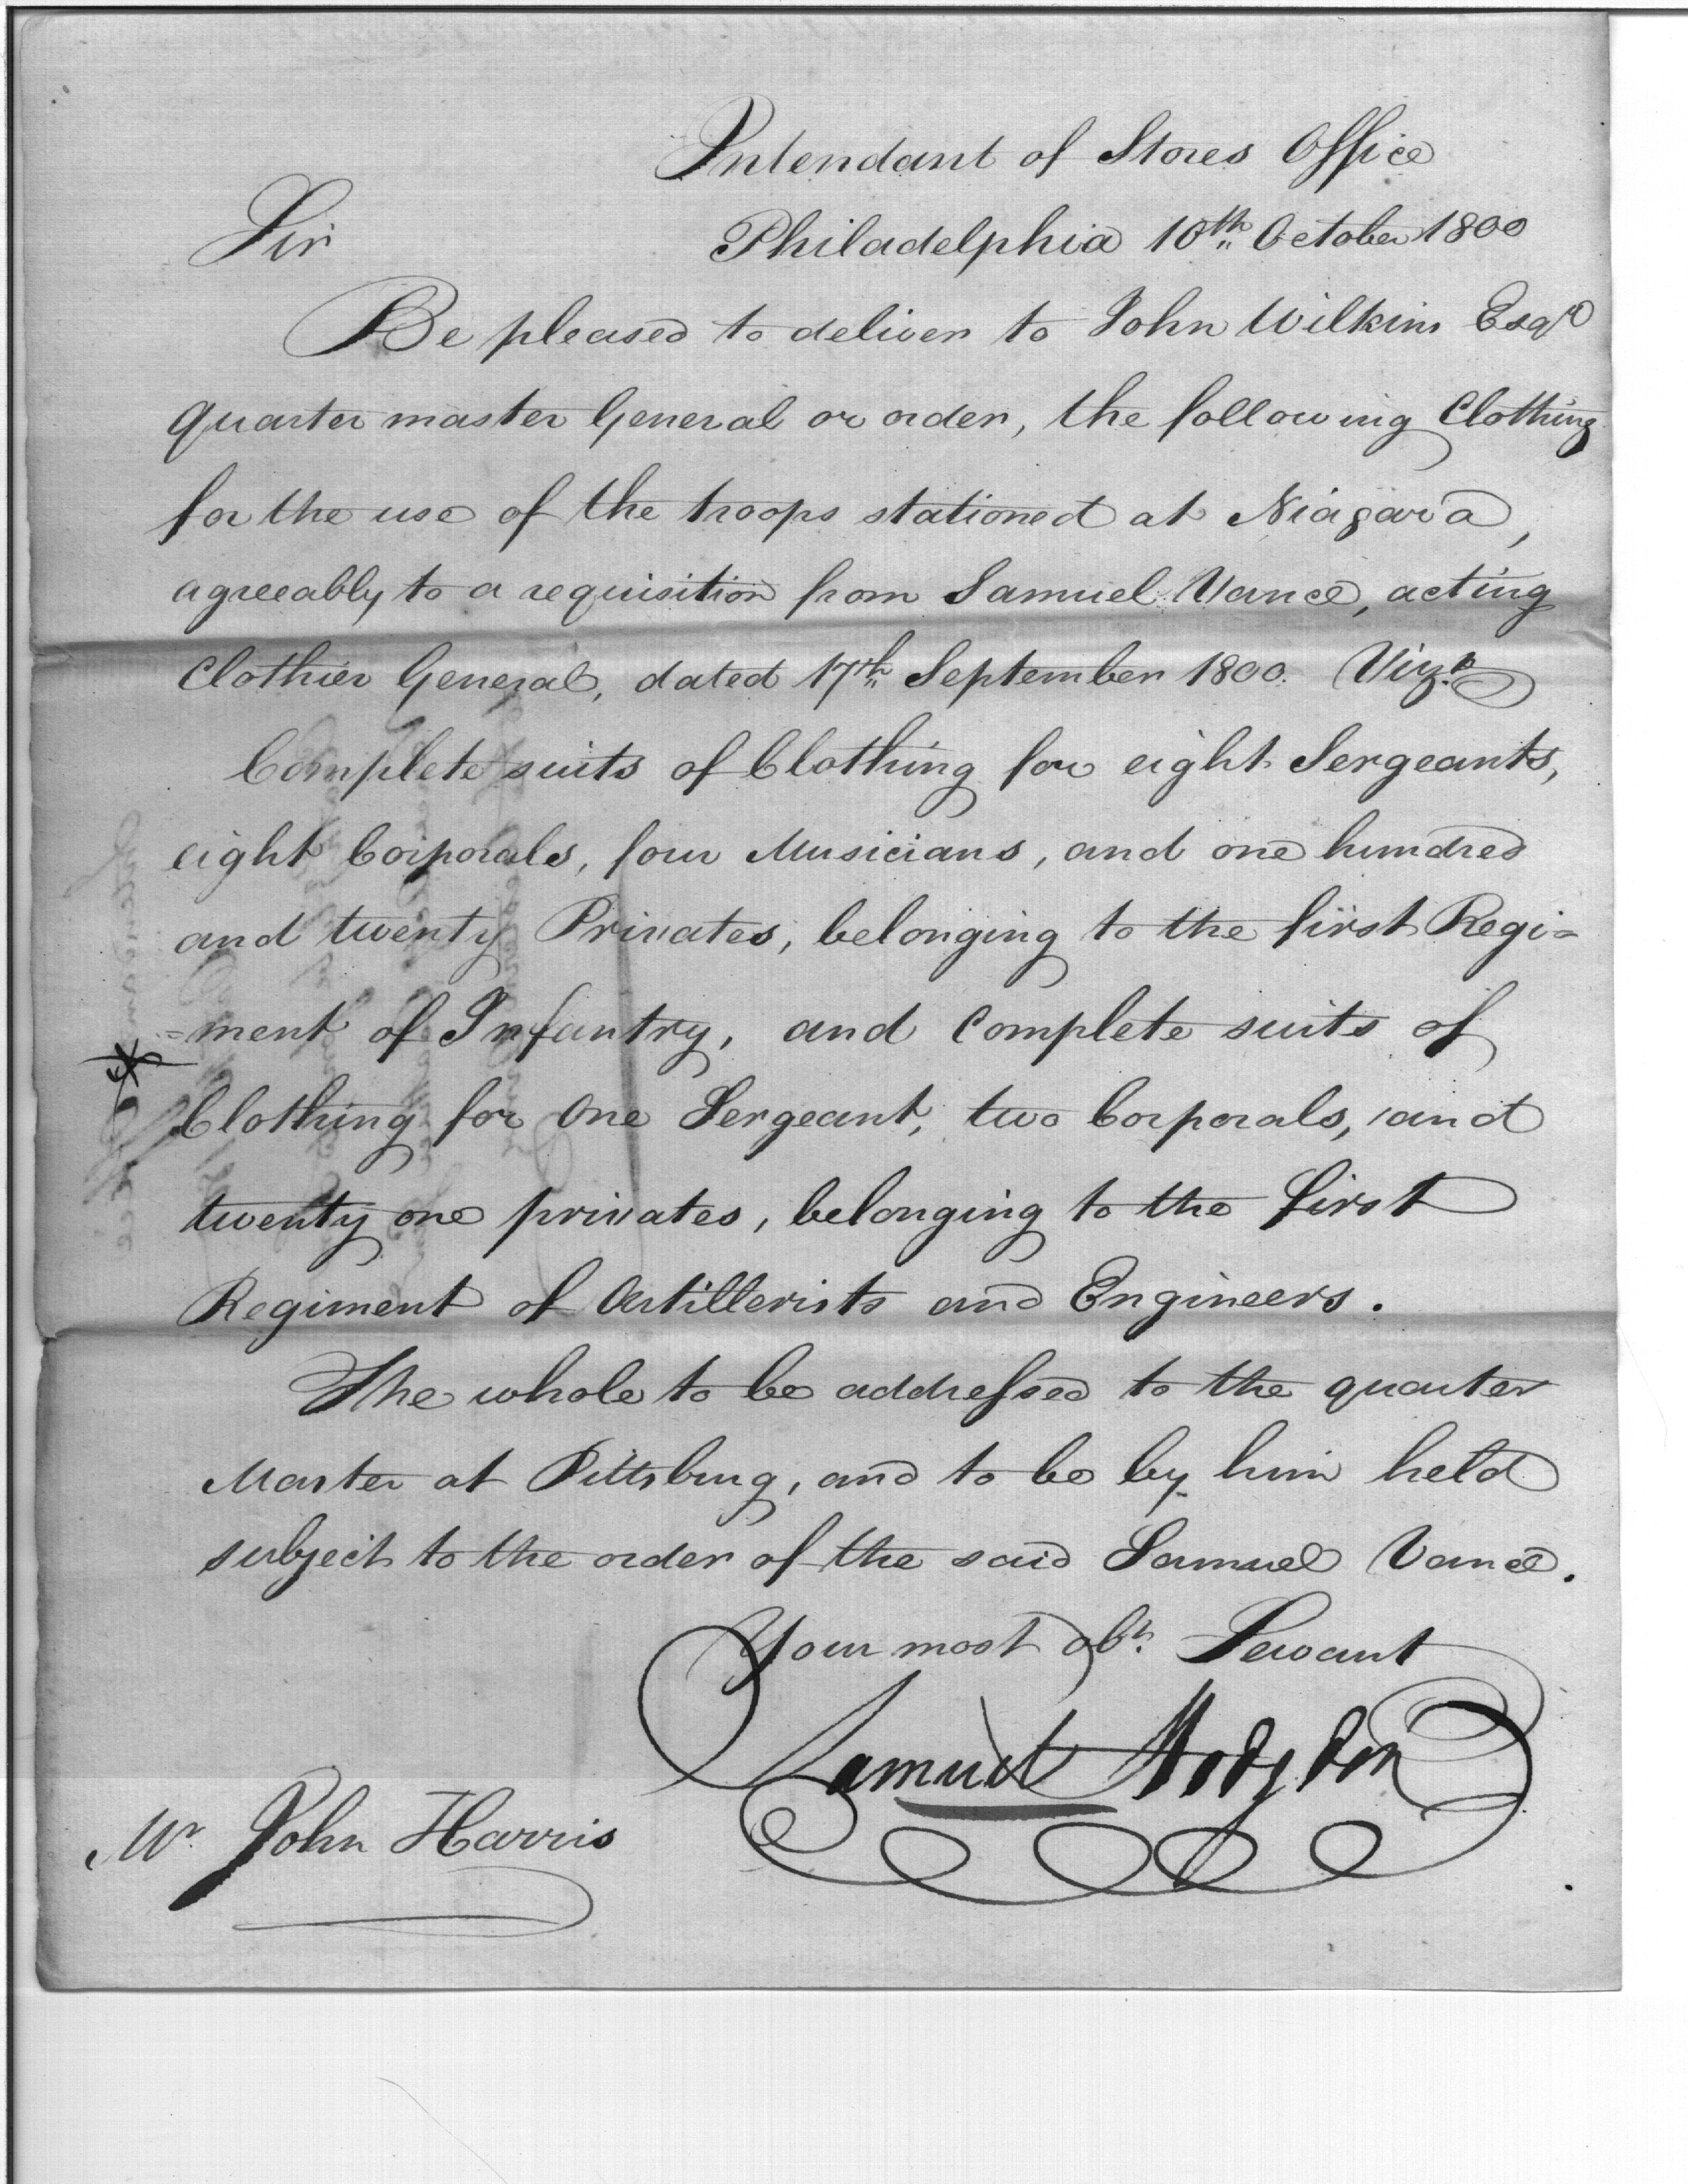 Intendant of Stores Office
Sir
Philadelphia 10th October 1800
Be pleased to deliver to John Wilkins Esqr
quarter master General or order, the following Clothing
for the use of the troops stationed at Niagara,
agreeably to a requisition from Samuel Vance, acting
Clothier General, dated 17th September 1800. Vizt
Complete suits of Clothing for eight Sergeants,
eight Corporals, four Musicians, and one hundred
and twenty Privates, belonging to the first Regi=
=ment of Infantry, and Complete suits of
Clothing for One Sergeant, two Corporals, and
twenty one privates, belonging to the first
Regiment of Artillerists and Engineers.
The whole to be addressed to the quarter
Master at Pittsburg, and to be by him held
subject to the order of the said Samuel Vance.
Your most obt. Servant
Samuel Hodgdon
Mr. John Harris